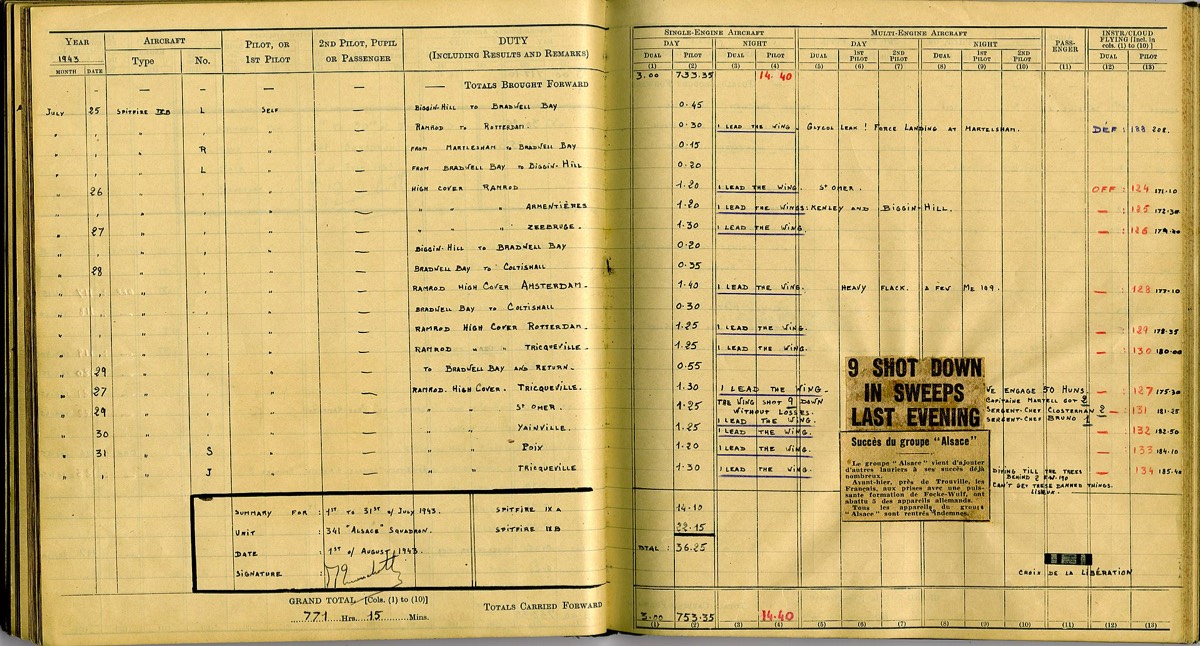 YEAR AIRCRAFT PILOT, OR 1ST PILOT 2ND PILOT, PUPIL OR PASSENGER DUTY (INCLUDING RESULTS AND REMARKS) SINGLE-ENGINE AIRCRAFT MULTI-ENGINE AIRCRAFT PASS-ENGER INSTR/CLOUD FLYING [Incl. in cols. (1) to (10)]
1943 Type No. DAY NIGHT DAY NIGHT
MONTH DATE DUAL PILOT DUAL PILOT DUAL 1ST PILOT 2ND PILOT DUAL 1ST PILOT 2ND PILOT DUAL PILOT
(1) (2) (3) (4) (5) (6) (7) (8) (9) (10) (11) (12) (13)
— — — — — — TOTALS BROUGHT FORWARD 3.00 733.35 14.40
JULY 25 SPITFIRE IXB L SELF — BIGGIN-HILL TO BRADWELL BAY 0.45
" " " " " — RAMROD TO ROTTERDAM. 0.30 I LEAD THE WING. GLYCOL LEAK! FORCE LANDING AT MARTELSHAM. DÉF: 188 208.
" " " R " — FROM MARTLESHAM TO BRADWELL BAY 0.15
" " " L " — FROM BRADWELL BAY TO BIGGIN-HILL 0.20
" 26 " " " — HIGH COVER RAMROD 1.20 I LEAD THE WING. ST OMER. OFF: 124 171.10
" " " " " — " " ARMENTIÈRES 1.20 I LEAD THE WINGS: KENLEY AND BIGGIN-HILL. — 125 172.30
" 27 " " " — " " ZEEBRUGE. 1.30 I LEAD THE WING. — 126
" " " " " — BIGGIN-HILL TO BRADWELL BAY 0.20
" 28 " " " — BRADWELL BAY TO COLTISHALL 0.35
" " " " " — RAMROD HIGH COVER AMSTERDAM. 1.40 I LEAD THE WING. HEAVY FLACK. A FEW ME 109. — 128 177.10
" " " " " — BRADWELL BAY TO COLTISHALL 0.30
" " " " " — RAMROD HIGH COVER ROTTERDAM. 1.25 I LEAD THE WING. — 129 178.35
" " " " " — RAMROD " " TRICQUEVILLE. 1.25 I LEAD THE WING. — 130 180.00
" 29 " " " — TO BRADWELL BAY AND RETURN. 0.55
" 27 " " " — RAMROD. HIGH COVER. TRICQUEVILLE. 1.30 I LEAD THE WING. WE ENGAGE 50 HUNS. — 127 175.30
" 29 " " " — " " ST OMER. 1.25 THE WING SHOT 9 DOWN WITHOUT LOSSES. I LEAD THE WING. CAPITAINE MARTELL GOT 2 SERGENT-CHEF CLOSTERMAN 2 SERGENT-CHEF BRUNO 1 — 131 181.25
" 30 " " " — " " YAINVILLE. 1.25 I LEAD THE WING. — 132 182.50
" 31 " S " — " " POIX 1.20 I LEAD THE WING. — 133 184.10
" " " J " — " " TRICQUEVILLE 1.30 I LEAD THE WING. DIVING TILL THE TREES BEHIND 2 F.W. 190 CAN'T GET THESE DAMNED THINGS. LISIEUX. — 134 185.40
9 SHOT DOWN
IN SWEEPS
LAST EVENING
Succès du groupe "Alsace"
Le groupe "Alsace" vient d'ajouter
d'autres lauriers à ses succès déjà
nombreux.
Avant-hier, près de Trouville, les
Français, aux prises avec une puis-
sante formation de Focke-Wulf, ont
abattu 5 des appareils allemands.
Tous les appareils du groupe
"Alsace" sont rentrés indemnes.
SUMMARY FOR : 1ST TO 31ST OF JULY 1943. SPITFIRE IX A 14.10
UNIT : 341 "ALSACE" SQUADRON. SPITFIRE IX B 22.15
DATE : 1ST OF AUGUST 1943. TOTAL : 36.25
SIGNATURE :
CROIX DE LA LIBÉRATION
GRAND TOTAL [Cols. (1) to (10)]
771 Hrs. 15 Mins. TOTALS CARRIED FORWARD 3.00 753.35 14.40
(1) (2) (3) (4) (5) (6) (7) (8) (9) (10) (11) (12) (13)